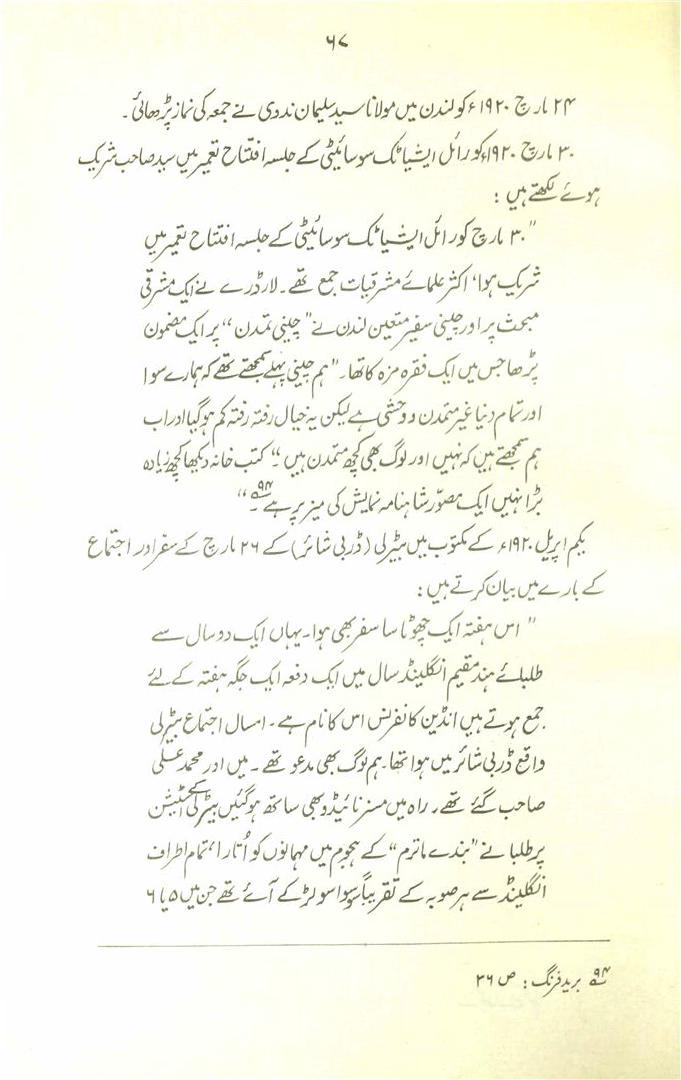 ۶۷
۲۴ مارچ ۱۹۲۰ء کو لندن میں مولانا سید سلیمان ندوی نے جمعہ کی نماز پڑھائی۔
۳۰ مارچ ۱۹۲۰ء کو رائل ایشیاٹک سوسائیٹی کے جلسہ افتتاح تعمیر میں سید صاحب شریک
ہوئے لکھتے ہیں :
"۳۰ مارچ کو رائل ایشیاٹک سوسائیٹی کے جلسہ افتتاح تعمیر میں
شریک ہوا، اکثر علمائے مشرقیات جمع تھے۔ لارڈ رے نے ایک مشرقی
مبحث پر اور چینی سفیر متعین لندن نے "چینی تمدن" پر ایک مضمون
پڑھا جس میں ایک فقرہ مزہ کا تھا۔ "ہم چینی پہلے سمجھتے تھے کہ ہمارے سوا
اور تمام دنیا غیر متمدن و وحشی ہے لیکن یہ خیال رفتہ رفتہ کم ہوگیا اور اب
ہم سمجھتے ہیں کہ نہیں اور لوگ بھی کچھ متمدن ہیں"۔ کتب خانہ دیکھا کچھ زیادہ
بڑا نہیں ایک مصوّر شاہنامہ نمایش کی میز پر ہے۔۹۴"
یکم اپریل ۱۹۲۰ء کے مکتوب میں ہیٹرلی (ڈربی شائر) کے ۲۶ مارچ کے سفر اور اجتماع
کے بارے میں بیان کرتے ہیں :
"اس ہفتہ ایک چھوٹا سا سفر بھی ہوا۔ یہاں ایک دو سال سے
طلبائے ہند مقیم انگلینڈ سال میں ایک دفعہ ایک جگہ ہفتہ کے لئے
جمع ہوتے ہیں انڈین کانفرنس اس کا نام ہے۔ امسال اجتماع ہیٹرلی
واقع ڈربی شائر میں ہوا تھا۔ ہم لوگ بھی مدعو تھے۔ میں اور محمد علی
صاحب گئے تھے۔ راہ میں مسز نائیڈو بھی ساتھ ہوگئیں ہیٹرلی کے اسٹیشن
پر طلبا نے "بندے ماترم" کے ہجوم میں مہمانوں کو اُتارا، تمام اطراف
انگلینڈ سے ہر صوبہ کے تقریباً سوا سو لڑکے آئے تھے جن میں ۵ یا ۶
۹۴ برید فرنگ : ص ۳۶